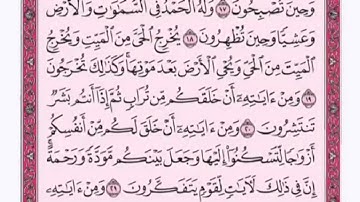 وَحِينَ تُصْبِحُونَ ١٧ وَلَهُ الْحَمْدُ فِي السَّمَٰوَٰتِ وَالْأَرْضِ
وَعَشِيًّا وَحِينَ تُظْهِرُونَ ١٨ يُخْرِجُ الْحَيَّ مِنَ الْمَيِّتِ وَيُخْرِجُ
الْمَيِّتَ مِنَ الْحَيِّ وَيُحْيِ الْأَرْضَ بَعْدَ مَوْتِهَا ۚ وَكَذَٰلِكَ تُخْرَجُونَ
١٩ وَمِنْ ءَايَٰتِهِ أَنْ خَلَقَكُم مِّن تُرَابٍ ثُمَّ إِذَا أَنتُم بَشَرٌ
تَنتَشِرُونَ ٢٠ وَمِنْ ءَايَٰتِهِ أَنْ خَلَقَ لَكُم مِّنْ أَنفُسِكُمْ
أَزْوَٰجًا لِّتَسْكُنُوا إِلَيْهَا وَجَعَلَ بَيْنَكُم مَّوَدَّةً وَرَحْمَةً ۚ
إِنَّ فِي ذَٰلِكَ لَءَايَٰتٍ لِّقَوْمٍ يَتَفَكَّرُونَ ٢١ وَمِنْ ءَايَٰتِهِ